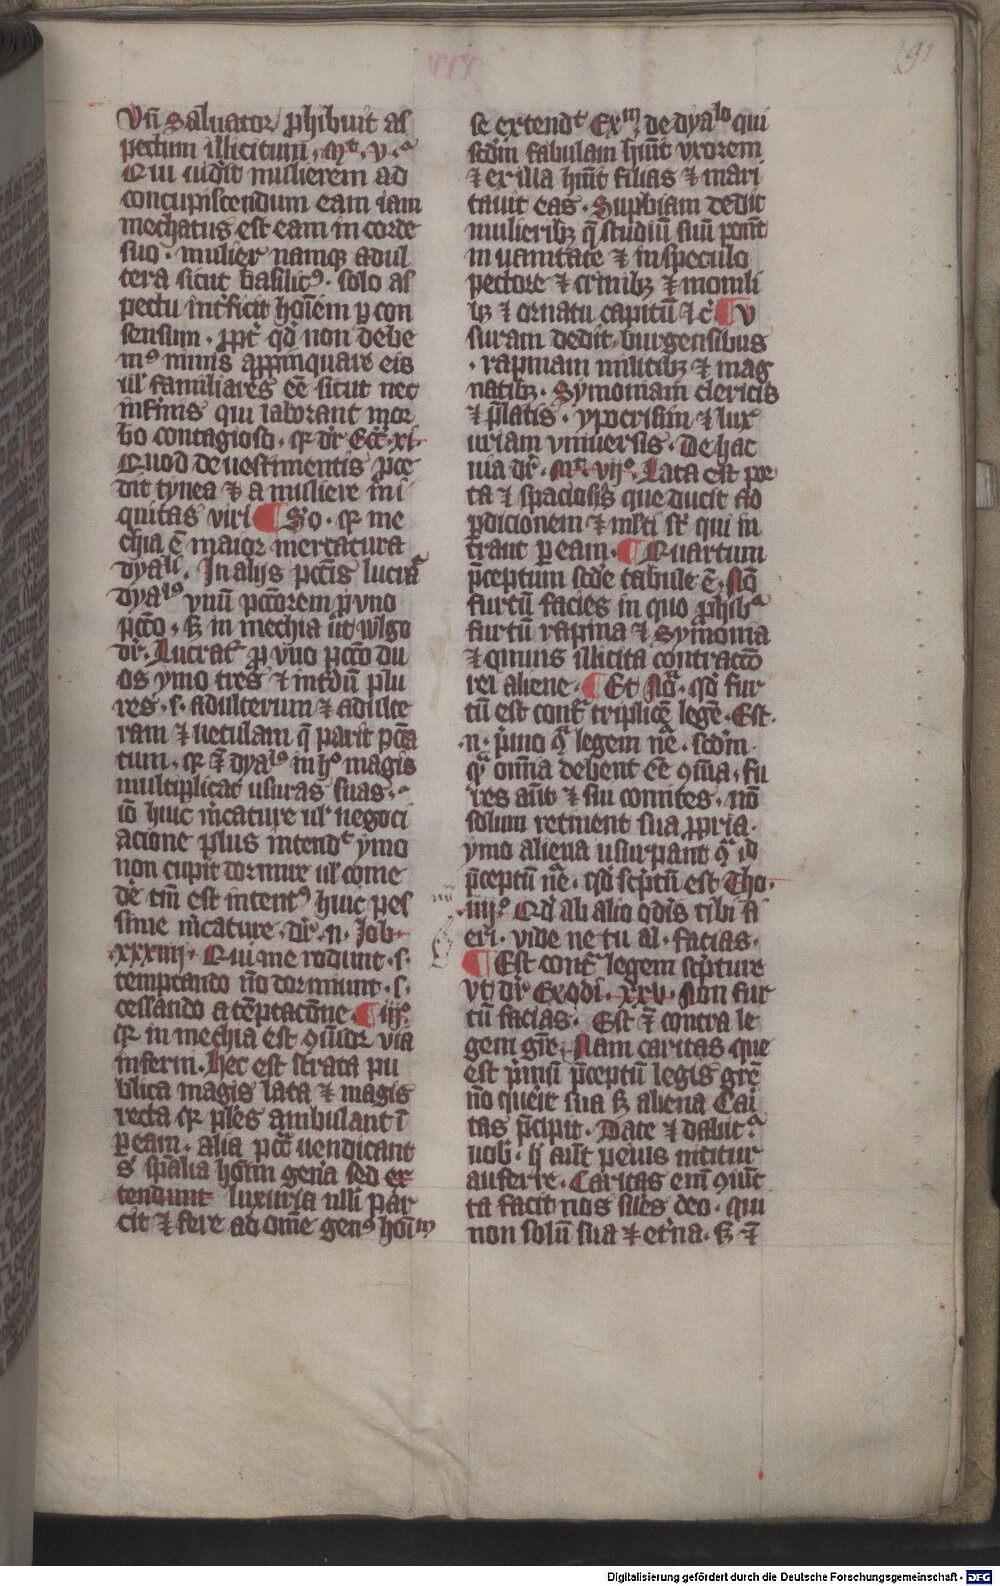 191
Vn̄ Saluator ꝓhibuit as
pectum illicitum . Mt . v .
Qui uidit mulierem ad
concupiscendum eam iam
mechatus est eam in corde
suo . mulier namqꝫ adul
tera sicut basilicꝰ . solo as
pectu int̓ficit hoīem ꝑ con
sensum . ꝓpt̓ qd̓ non debe
mꝰ nimis appinquare eis
ul̓ familiares eē sicut nec
infirmis qui laborant mor
bo contagioso . qr dr̄ Ecc̄ . xl
Quod de uestimentis ꝓce
dit tynea ⁊ a muliere īni
quitas viri ¶ So . qr me
chia ē maior mercatura
dyaⁱⁱ . In alijs pcc̄is lucra
dyaˡꝰ vnū pcc̄orem ꝑ vno
pcc̄o . sꝫ in mechia ut wlgo
dr̄ . Lucrat ꝑ vno pcc̄o du
os ymo tres ⁊ int̓dū plu
res . s . adulterum ⁊ adulte
ram ⁊ uetulam q̄ parit pcc̄a
tum . qr dyaˡꝰ in hꝰ magis
multiplicat usuras suas .
iō huic m̓cature ul̓ negoci
acione plus intendt ymo
non cupit dormire ul̓ come
de tm̄ est intentꝰ huic pes
sime m̓cature . dr̄ . n . Iob
xxxiij . Qui me rodunt . s .
temptando nō dormiunt . s .
cessando a tēptacōne ¶ iijº
qr in mechia est via
inferni . Hec est strata pu
blica magis lata ⁊ magis
recta qr pl̓es ambulant ī
ꝑ eam . alia pcc̄a uendicant
s̓ sp̄alia hoīm gen̓a sed ex
tendunt luxuria nlli par
cit ⁊ fere ad om̄e genꝰ hoīm
se extendt Exᵐ de dyaˡᵒ qui
scd̓m fabulam hūit vxorem
⁊ ex illa hūit filias ⁊ mari
tauit eas . Supbiam dedit
mulieribꝫ q̄ studiū suū ponūt
in uanitate ⁊ in speculo
pectore ⁊ crinibꝫ ⁊ monili
bꝫ ⁊ ornatu capitū ⁊ c̓ ¶ V
suram dedit burgensibus
. rapinam militibꝫ ⁊ mag
natibꝫ . Symoniam clericis
⁊ p̄latis . ypocrisim ⁊ lux
uriam vniuersis . De hac
uia dr̄ . Mt . vijº . Lata est por
ta ⁊ spaciosis que ducit ad
ꝑdicionem ⁊ ml̓ti st̄ qui in
trant ꝑ eam . ¶ Quartum
p̄ceptum scd̓e tabule ē . Nō
furtū facies in quo ꝓhibꝫ
furtū rapina ⁊ Symonia
⁊ omnis illicita contractō
rei aliene . ¶ Et Nō . qd̓ fur
tū est cont̓ triplicē legē . Est
. n . p̓mo legem nē . scd̓m
om̄ia debent eē ꝯm̄ia . fu
res aūt ⁊ sui comites . nō
solum retinent sua ꝓpria .
ymo aliena usurpant id
p̄ceptū nē . qd̓ sc̓ptū est Tho .
iiijº Qd̓ ab alio odis tibi fi
eri . vide ne tu al . facias .
¶ Est cont̓ legem sc̓pture
vt dr̄ Exodi . xxv . Non fur
tū facias . Est contra le
gem gr̄e . Nam caritas que
est p̓mū p̄ceptū legis gr̄e
nō querit sua sꝫ aliena Cari
tas p̄cipit . Date ⁊ dabit̓
uob . aūt nititur
auferre . Caritas em̄
ta facit nos siles deo . qui
non solū sua ⁊ et̓na . sꝫ
Digitalisierung gefördert durch die Deutsche Forschungsgemeinschaft - DFG